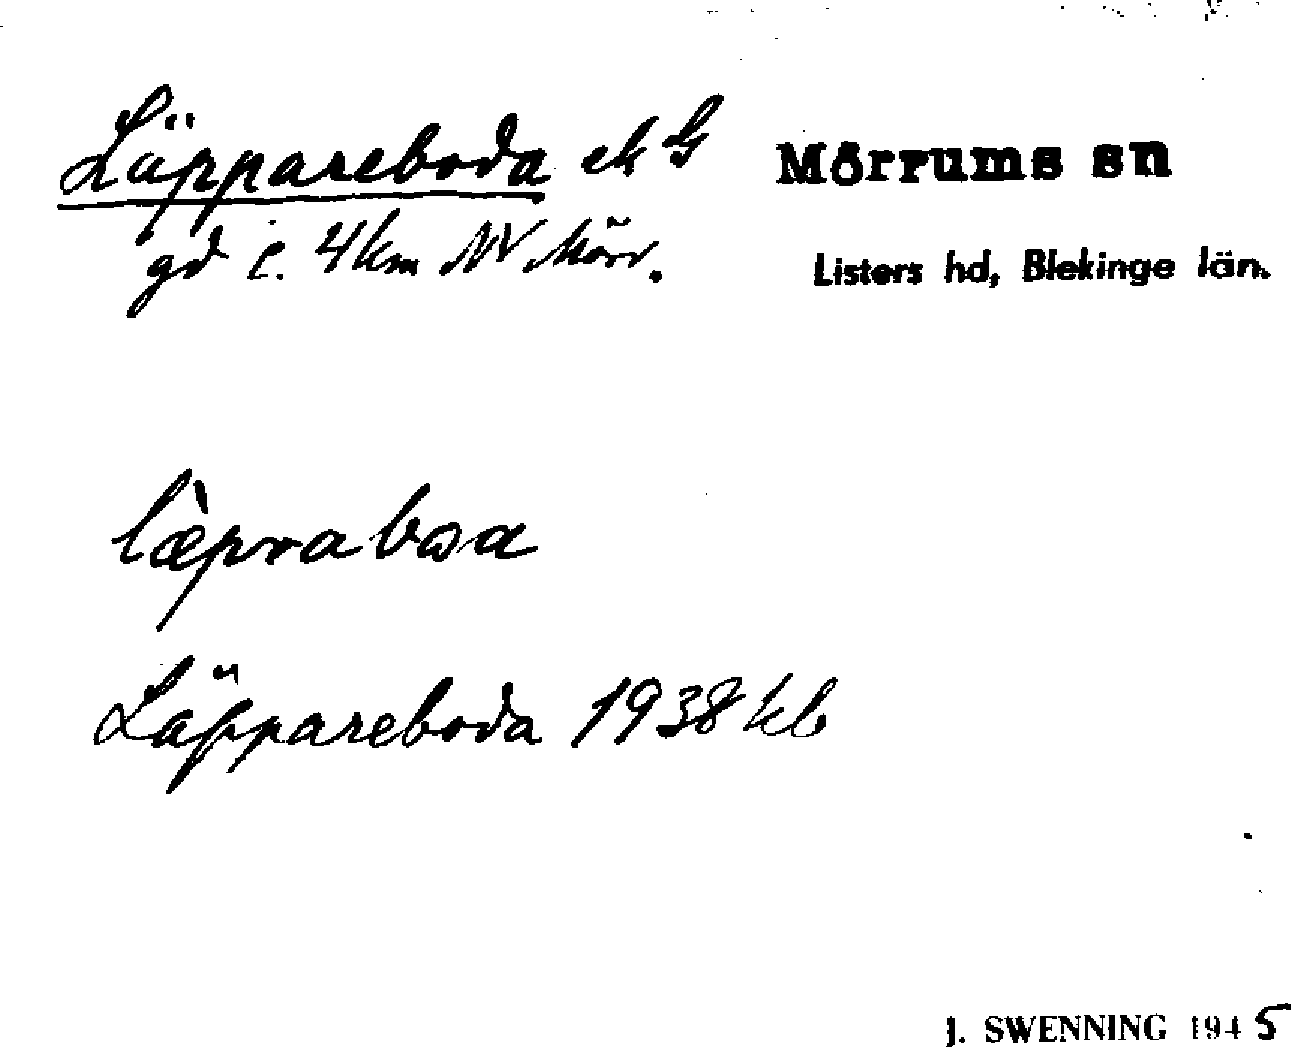 Läppareboda ek G Mörrums sn
gd c. 4 km NV Mörr. Listers hd, Blekinge län.
læ̀prabɷa
Läppareboda 1938 kb
J. SWENNING 1945